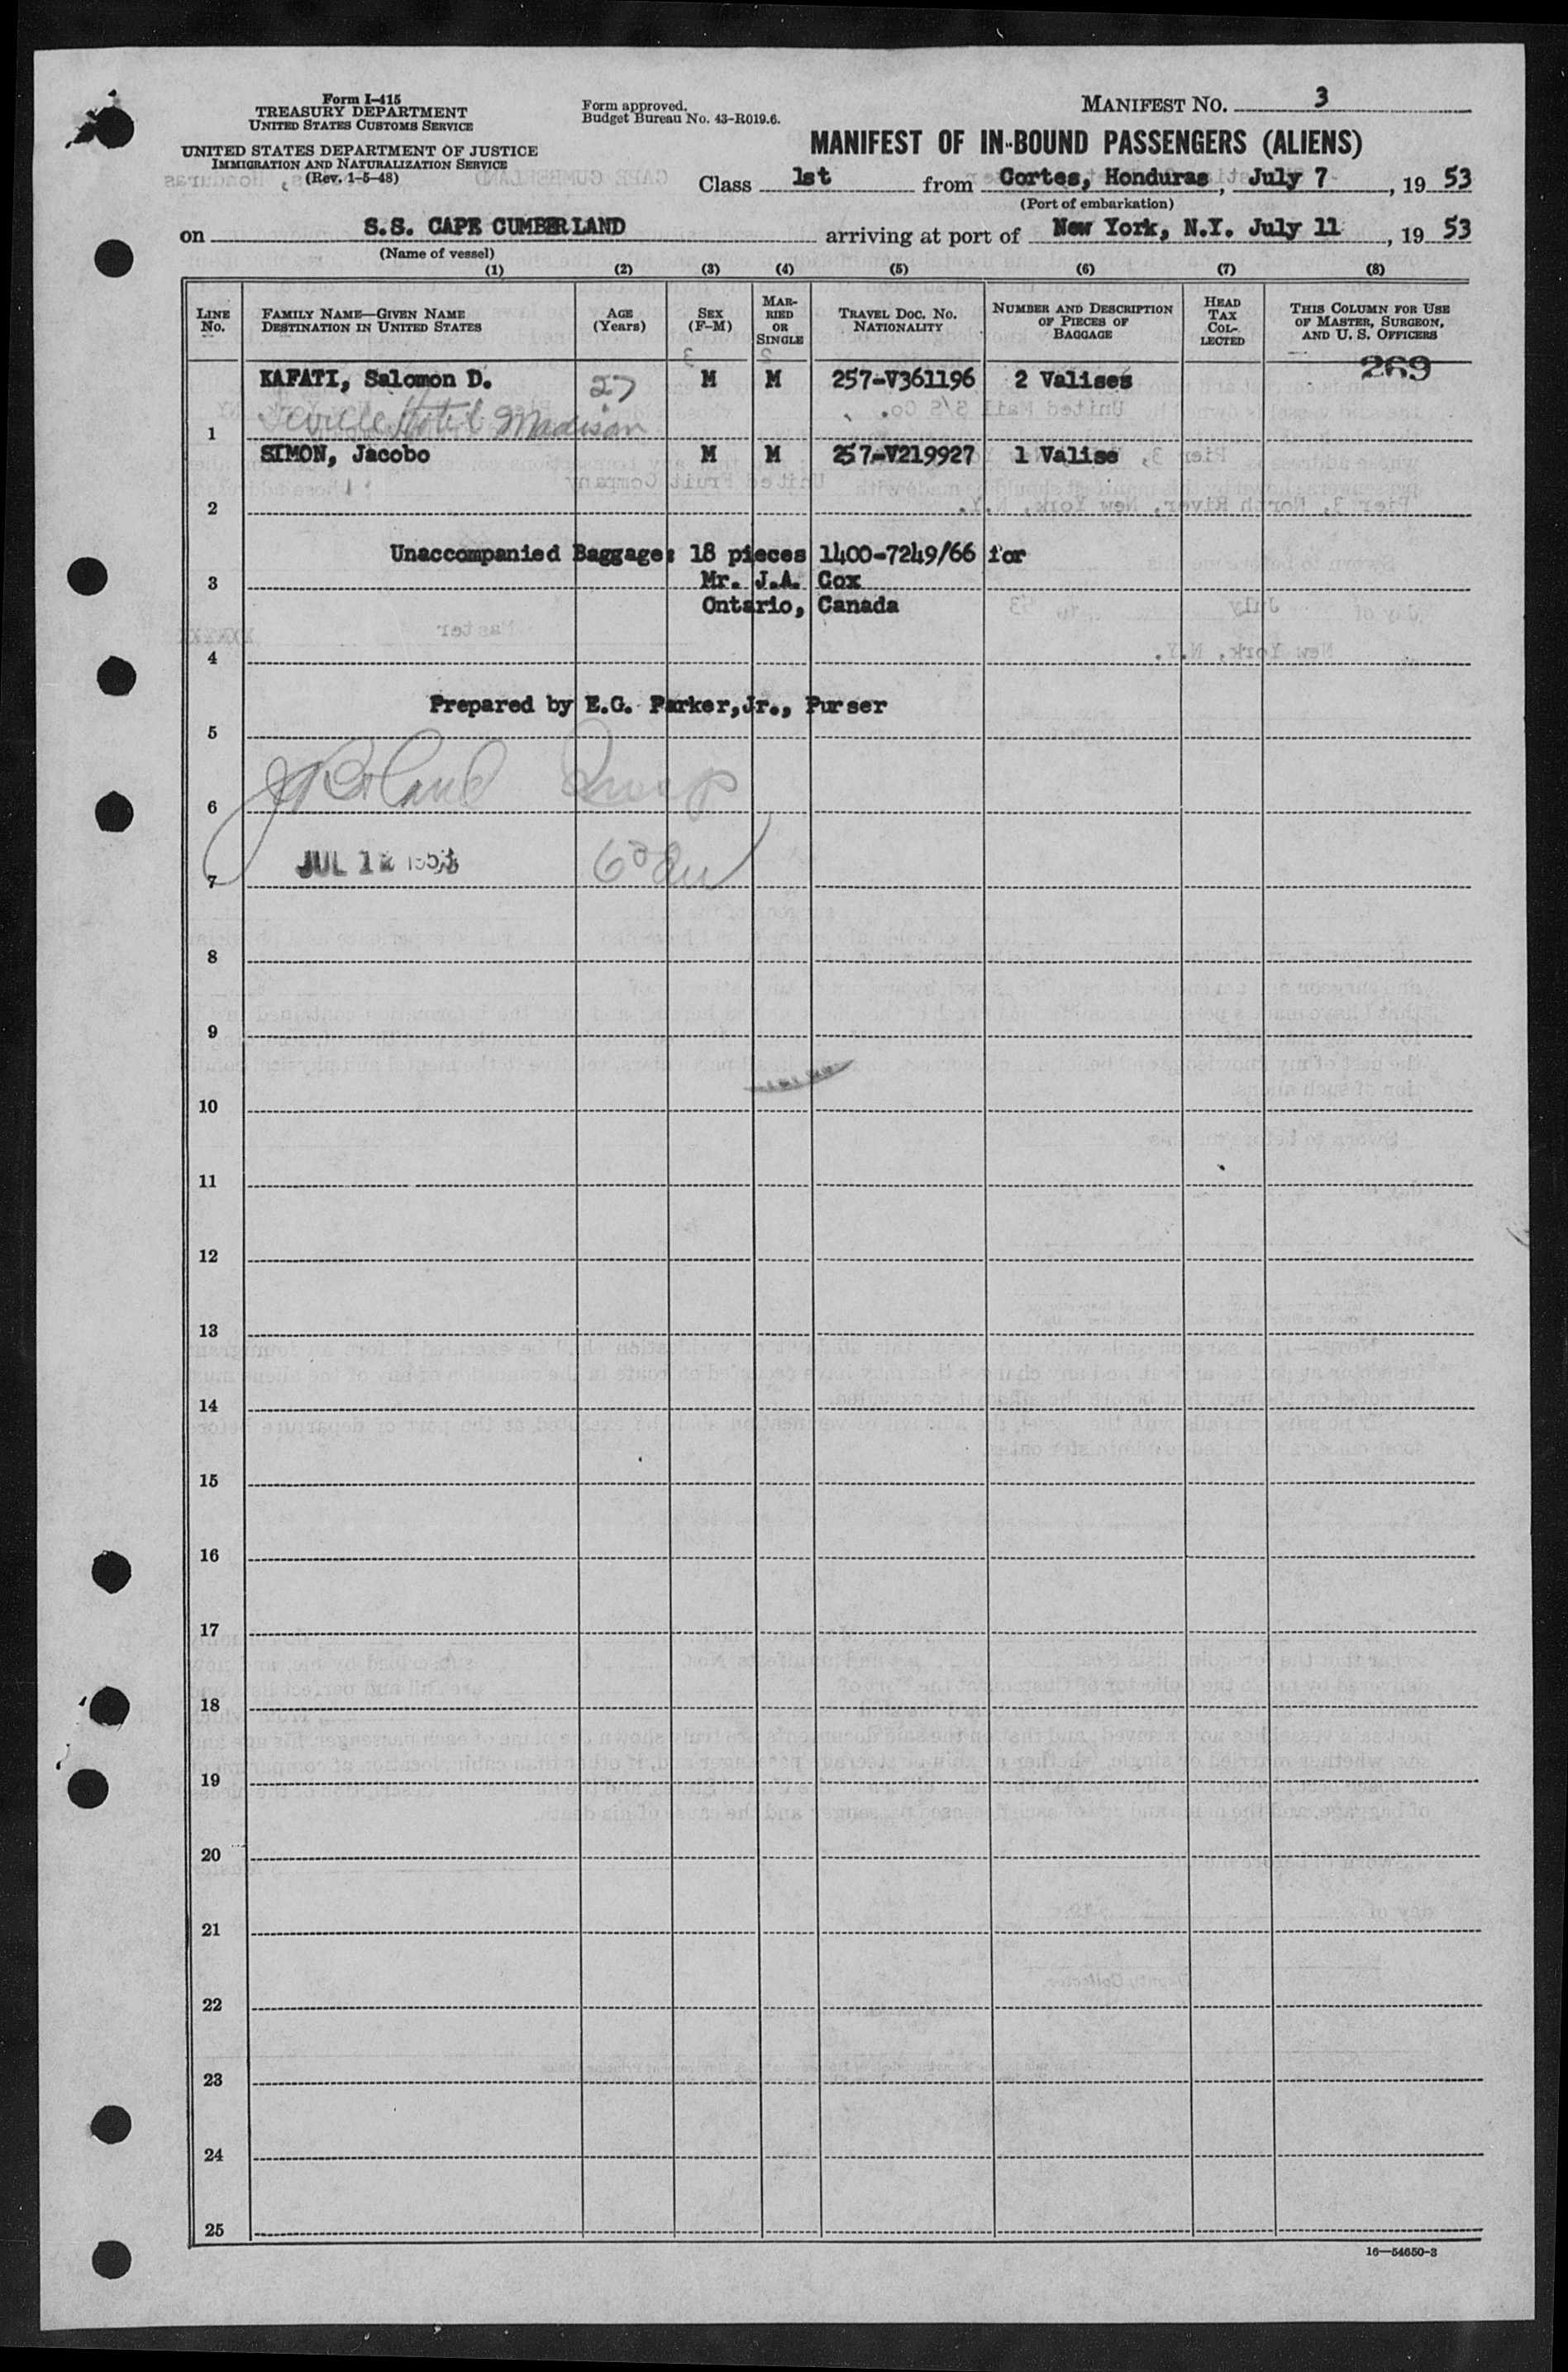 Form I-415
TREASURY DEPARTMENT
UNITED STATES CUSTOMS SERVICE
UNITED STATES DEPARTMENT OF JUSTICE
IMMIGRATION AND NATURALIZATION SERVICE
(Rev. 1-5-48)
Form approved.
Budget Bureau No. 43-R019.6.
MANIFEST NO. 3
MANIFEST OF IN-BOUND PASSENGERS (ALIENS)
Class 1st from Cortes, Honduras, July 7, 19 53
(Port of embarkation)
on S.S. CAPE CUMBERLAND arriving at port of New York, N.Y. July 11, 19 53
(Name of vessel)
(1) (2) (3) (4) (5) (6) (7) (8)
LINE No.
FAMILY NAME—GIVEN NAME DESTINATION IN UNITED STATES
AGE (Years)
SEX (F-M)
MARRIED OR SINGLE
TRAVEL DOC. NO. NATIONALITY
NUMBER AND DESCRIPTION OF PIECES OF BAGGAGE
HEAD TAX COLLECTED
THIS COLUMN FOR USE OF MASTER, SURGEON, AND U. S. OFFICERS
269
KAFATI, Salomon D. 27 M M 257-V361196 2 Valises
1 Seville Hotel Madison
SIMON, Jacobo M M 257-V219927 1 Valise
2
Unaccompanied Baggage: 18 pieces 1400-7249/66 for
3 Mr. J.A. Cox
Ontario, Canada
4
Prepared by E.G. Parker, Jr., Purser
5
6
JUL 12 1953
7
8
9
10
11
12
13
14
15
16
17
18
19
20
21
22
23
24
25
16—54650-3